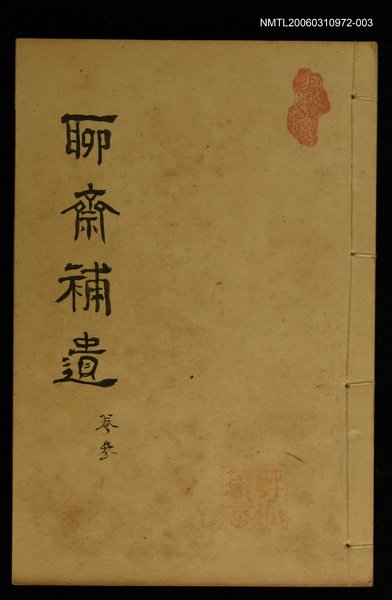 NMTL20060310972-003
聊齋補遺
卷參